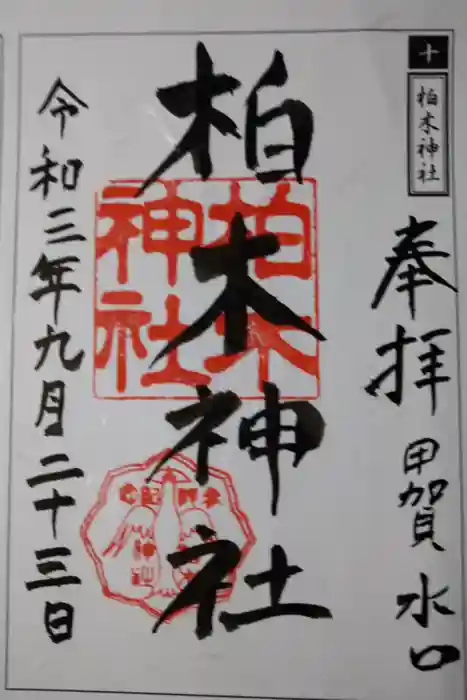 十
柏木神社
奉拝 甲賀 水口
柏木神社
柏木神社
令和三年九月二十三日